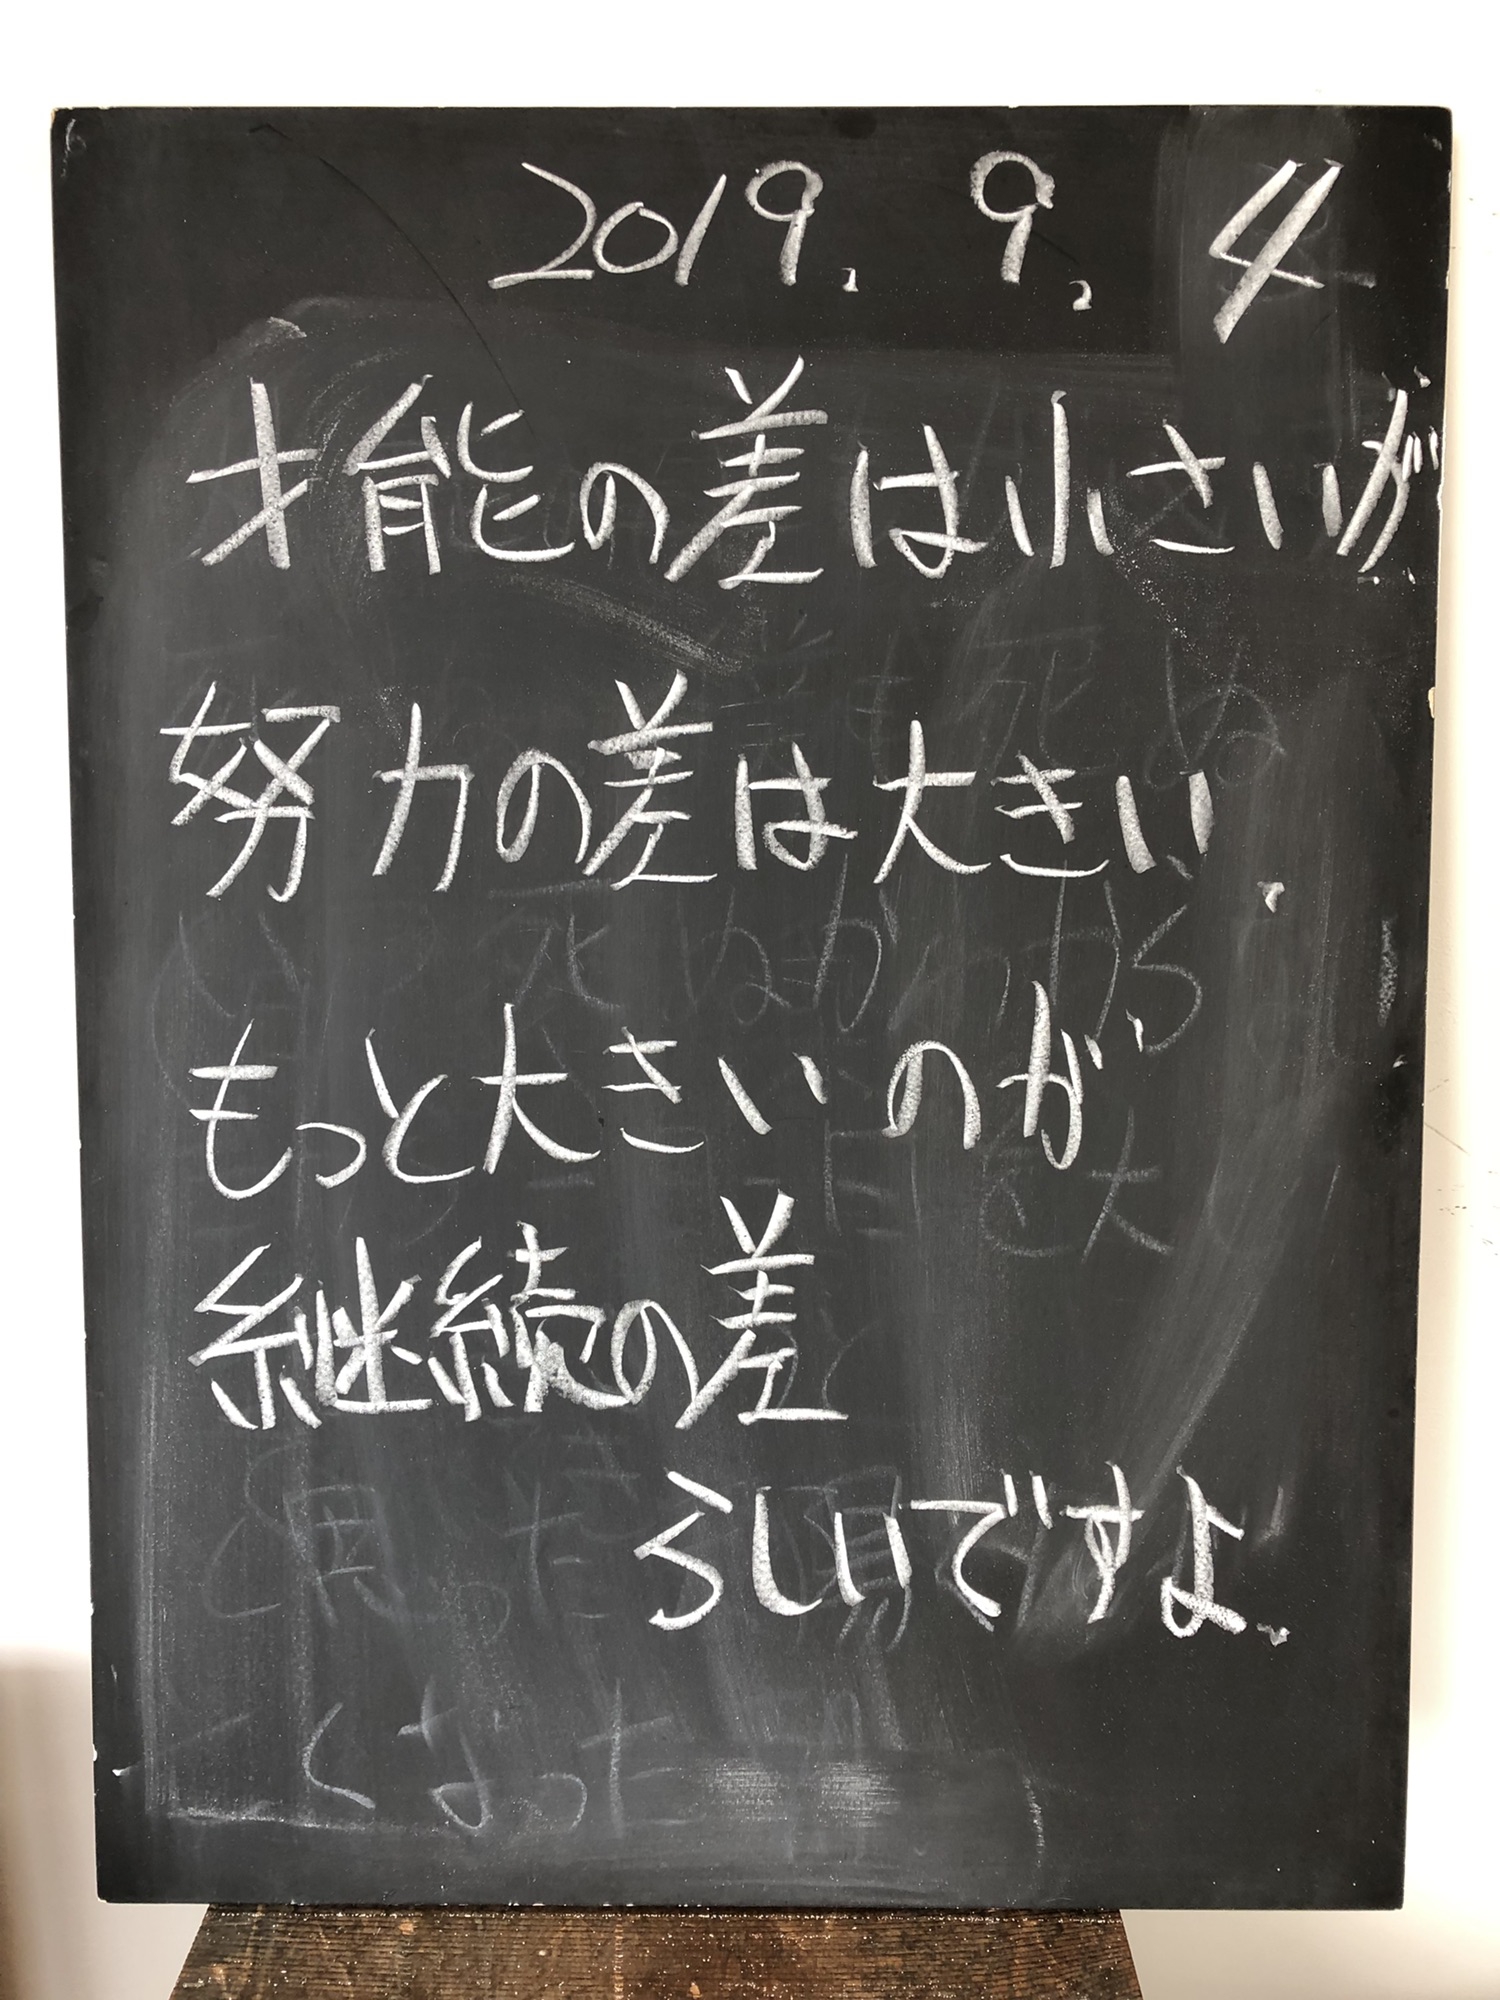 2019. 9. 4
才能の差は小さいが
努力の差は大きい、
もっと大きいのが
継続の差
らしいですよ、